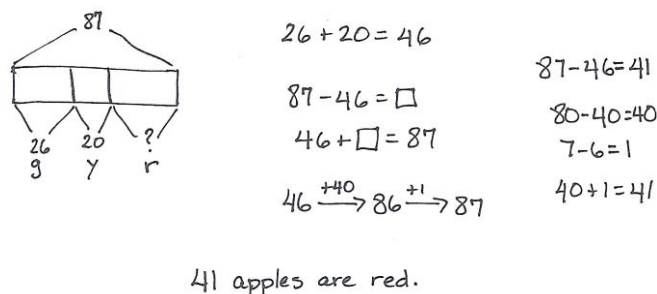 87
26 20 ?
g y r
26 + 20 = 46
87 - 46 = □
46 + □ = 87
46 +40→ 86 +1→ 87
87 - 46 = 41
80 - 40 = 40
7 - 6 = 1
40 + 1 = 41
41 apples are red.